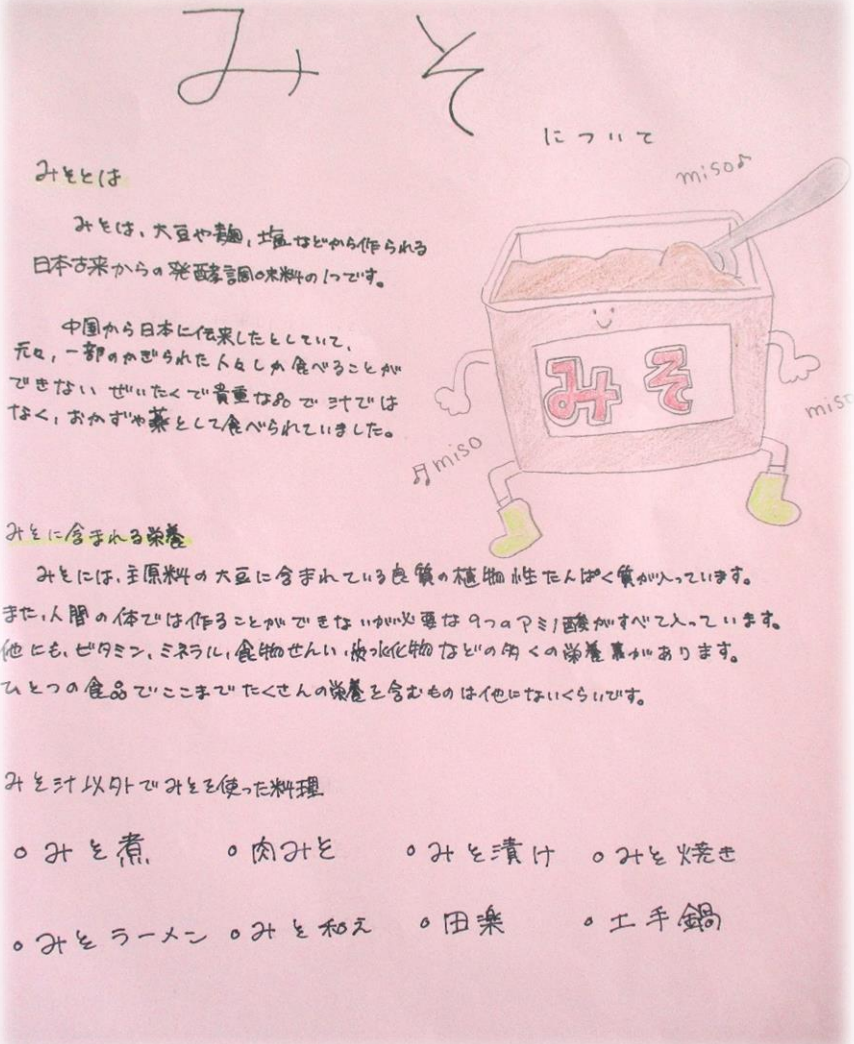 みそ
について
みそとは
みそは、大豆や麹、塩などから作られる
日本古来からの発酵調味料の1つです。
中国から日本に伝来したとしていて、
元々、一部のかぎられた人々しか食べることが
できない ぜいたくで貴重な品で汁では
なく、おかずや薬として食べられていました。
miso♪
みそ
miso
♫miso
みそに含まれる栄養
みそには、主原料の大豆に含まれている良質の植物性たんぱく質が入っています。
また、人間の体では作ることができないが必要な9つのアミノ酸がすべて入っています。
他にも、ビタミン、ミネラル、食物せんい、炭水化物などの多くの栄養素があります。
ひとつの食品でここまでたくさんの栄養を含むものは他にないくらいです。
みそ汁以外でみそを使った料理
○みそ煮 ○肉みそ ○みそ漬け ○みそ焼き
○みそラーメン ○みそ和え ○田楽 ○土手鍋